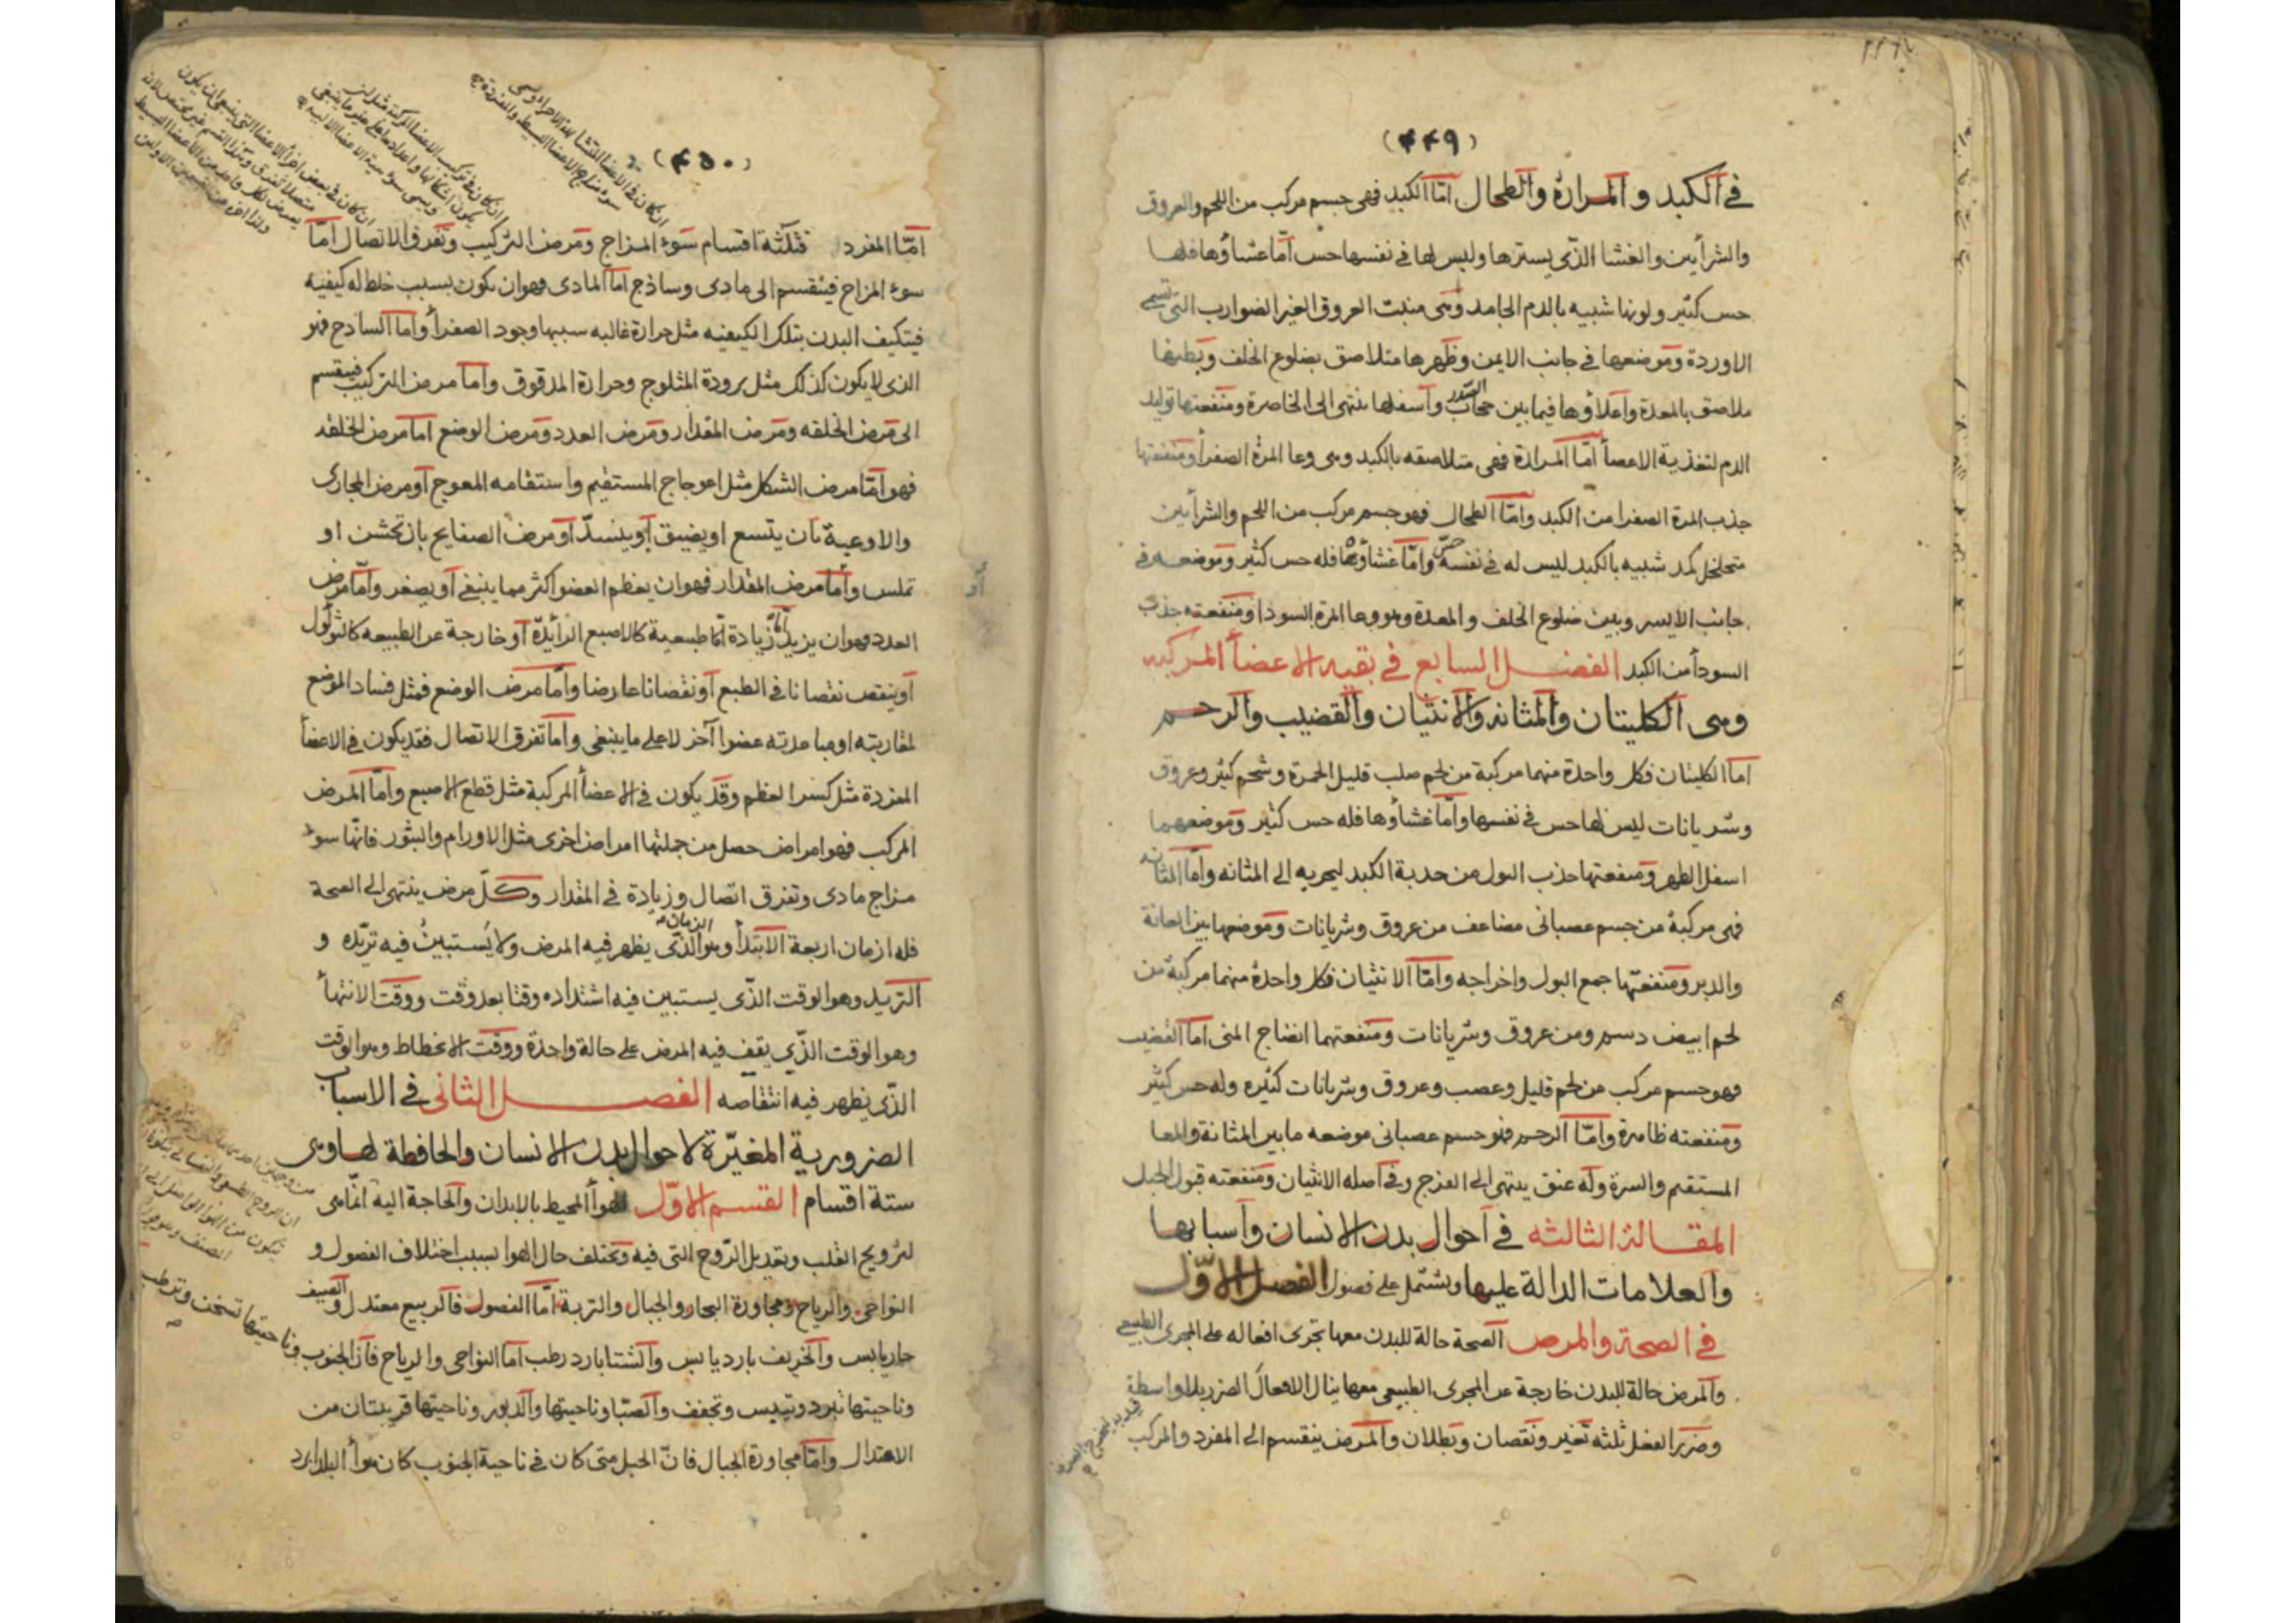 (٤٤٩)
في الكبد والمرارة والطحال امّا الكبد فهى جسم مركب من اللحم والعروق
والشرأيين والغشا الذّى يسترها وليس لها فى نفسها حس امّا غشاؤها فلها
حس كثير ولونها شبيه بالدم الجامد وهى منبت العروق الغير الضوارب التى تسمى
الاوردة وموضعها فى جانب الايمن وظهرها متلاصق بضلوع الخلف وبطنها
ملاصق بالمعدة واعلاؤها فيما بين حجاب الصّدر وآسفلها ينتهى الى الخاصرة ومنفعتها توليد
الدم لتغذية الاعضأ امّا المرارة فهى متلاصقه بالكبد وهى وعا المرة الصفرأ ومنفعتها
جذب المرة الصفرا من الكبد وامّا الطحال فهو جسم مركب من اللحم والشرأيين
متخلخل كمد شبيه بالكبد ليس له فى نفسه حسّ وامّا غشاؤه فله حس كثير وموضعه فى
جانب الايسر وبين ضلوع الخلف والمعدة وهو وعا المرة السودا ومنفعته جذب
السودأ من الكبد الفصل السابع فى بقيه الاعضأ المركبه
وهى الكليتان والمثانه والانثيان والقضيب والرحم
امّا الكليتان فكل واحدة منهما مركبة من لحم صلب قليل الحمرة وشحم كثير وعروق
وشريانات ليس لها حس فى نفسها وامّا غشاؤها فله حس كثير وموضعهما
اسفل الظهر ومنفعتها جذب البول من حدبة الكبد ليجريه الى المثانه وامّا المثانه
فهى مركبة من جسم عصبانى مضاعف من عروق وشريانات وموضعها بين العانة
والدبر ومنفعتها جمع البول واخراجه وامّا الانثيان فكل واحدة منهما مركبة من
لحم ابيض دسم ومن عروق وشريانات ومنفعتهما انضاج المنى امّا القضيب
فهو جسم مركب من لحم قليل وعصب وعروق وشريانات كثيره وله حس كثير
ومنفعته ظاهرة وامّا الرحم فهو جسم عصبانى موضعه ما بين المثانة والمعا
المستقيم والسرة وله عنق ينتهى الى الفرج وفى آصله الانثيان ومنفعته قبول الحبل
المقالة الثالثه فى آحوال بدن الانسان وآسبابها
والعلامات الدالة عليها ويشتمل على فصول الفصل الاوّل
فى الصحة والمرض الصحة حالة للبدن معها تجرى افعاله على المجرى الطبيعى
والمرض حالة للبدن خارجة عن المجرى الطبيعى معها ينال الافعال الضرر بلا واسطة
وضرر الفعل ثلثه تغير ونقصان وبطلان والمرض ينقسم الى المفرد والمركب
(٤٥٠)
امّا المفرد فثلثة اقسام سوء المزاج ومرض التركيب وتفرق الاتصال امّا
سوء المزاج فينقسم الى مادى وساذج امّا المادى فهو ان يكون بسبب خلط له كيفية
فيتكيف البدن بتلك الكيفيه مثل حرارة غالبه سببها وجود الصفرأ وامّا الساذج فهو
الذى لا يكون كذلك مثل برودة المثلوج وحرارة المدقوق وامّا مرض التركيب فينقسم
الى مرض الخلقه ومرض المقدار ومرض العدد ومرض الوضع امّا مرض الخلقه
فهو امّا مرض الشكل مثل اعوجاج المستقيم واستقامه المعوج آو مرض المجارى
والاوعية بان يتسع او يضيق آو ينسدّ آو مرض الصفايح بان تخشن او
تملس وأما مرض المقدار فهو ان يعظم العضو اكثر مما ينبغى آو يصغر وامّا مرض
العدد فهو ان يزيد امّا زيادة طبيعية كالاصبع الزأيدة آو خارجة عن الطبيعه كالثؤلول
آو ينقص نقصانا فى الطبع آو نقصانا عارضا وامّا مرض الوضع فمثل فساد الموضع
لمقاربته او مباعدته عضوا آخر لا على ما ينبغى وامّا تفرق الاتصال فقد يكون فى الاعضأ
المفردة مثل كسر العظم وقد يكون فى الاعضأ المركبة مثل قطع الاصبع وامّا المرض
المركب فهو امراض حصل من جملتها امراض اخرى مثل الاورام والبثور فانّها سوء
مزاج مادى وتفرق اتصال وزيادة فى المقدار وكلّ مرض ينتهى الى الصحة
فله ازمان اربعة الابتدأ وهو الزمان الذّى يظهر فيه المرض ولا يستبين فيه تزيّده و
التزيد وهو الوقت الذّى يستبين فيه اشتداده وقتا بعد وقت ووقت الانتهأ
وهو الوقت الذّى يقف فيه المرض على حالة واحدة ووقت الانحطاط وهو الوقت
الذّى يظهر فيه انتقاصه الفصل الثانى فى الاسباب
الضرورية المغيّرة لاحوال بدن الانسان والحافظة لها وهى
ستة اقسام القسم الاوّل الهوأ المحيط بالابدان والحاجة اليه انّما هى
لترويح القلب وتعديل الرّوح التى فيه وتختلف حال الهوا بسبب اختلاف الفصول و
النواحى والرياح ومجاورة البحار والجبال والتربة امّا الفصول فالربيع معتدل والصيف
حار يابس والخريف بارد يابس والشتا بارد رطب امّا النواحى والرياح فان الجنوب وناحيتها تسخن وترطب
وناحيتها تبرد وتيبس وتجفف والصبا وناحيتها والدبور وناحيتها قريبتان من
الاعتدال وامّا مجاورة الجبال فانّ الجبل متى كان فى ناحية الجنوب كان هوأ البلد ابرد